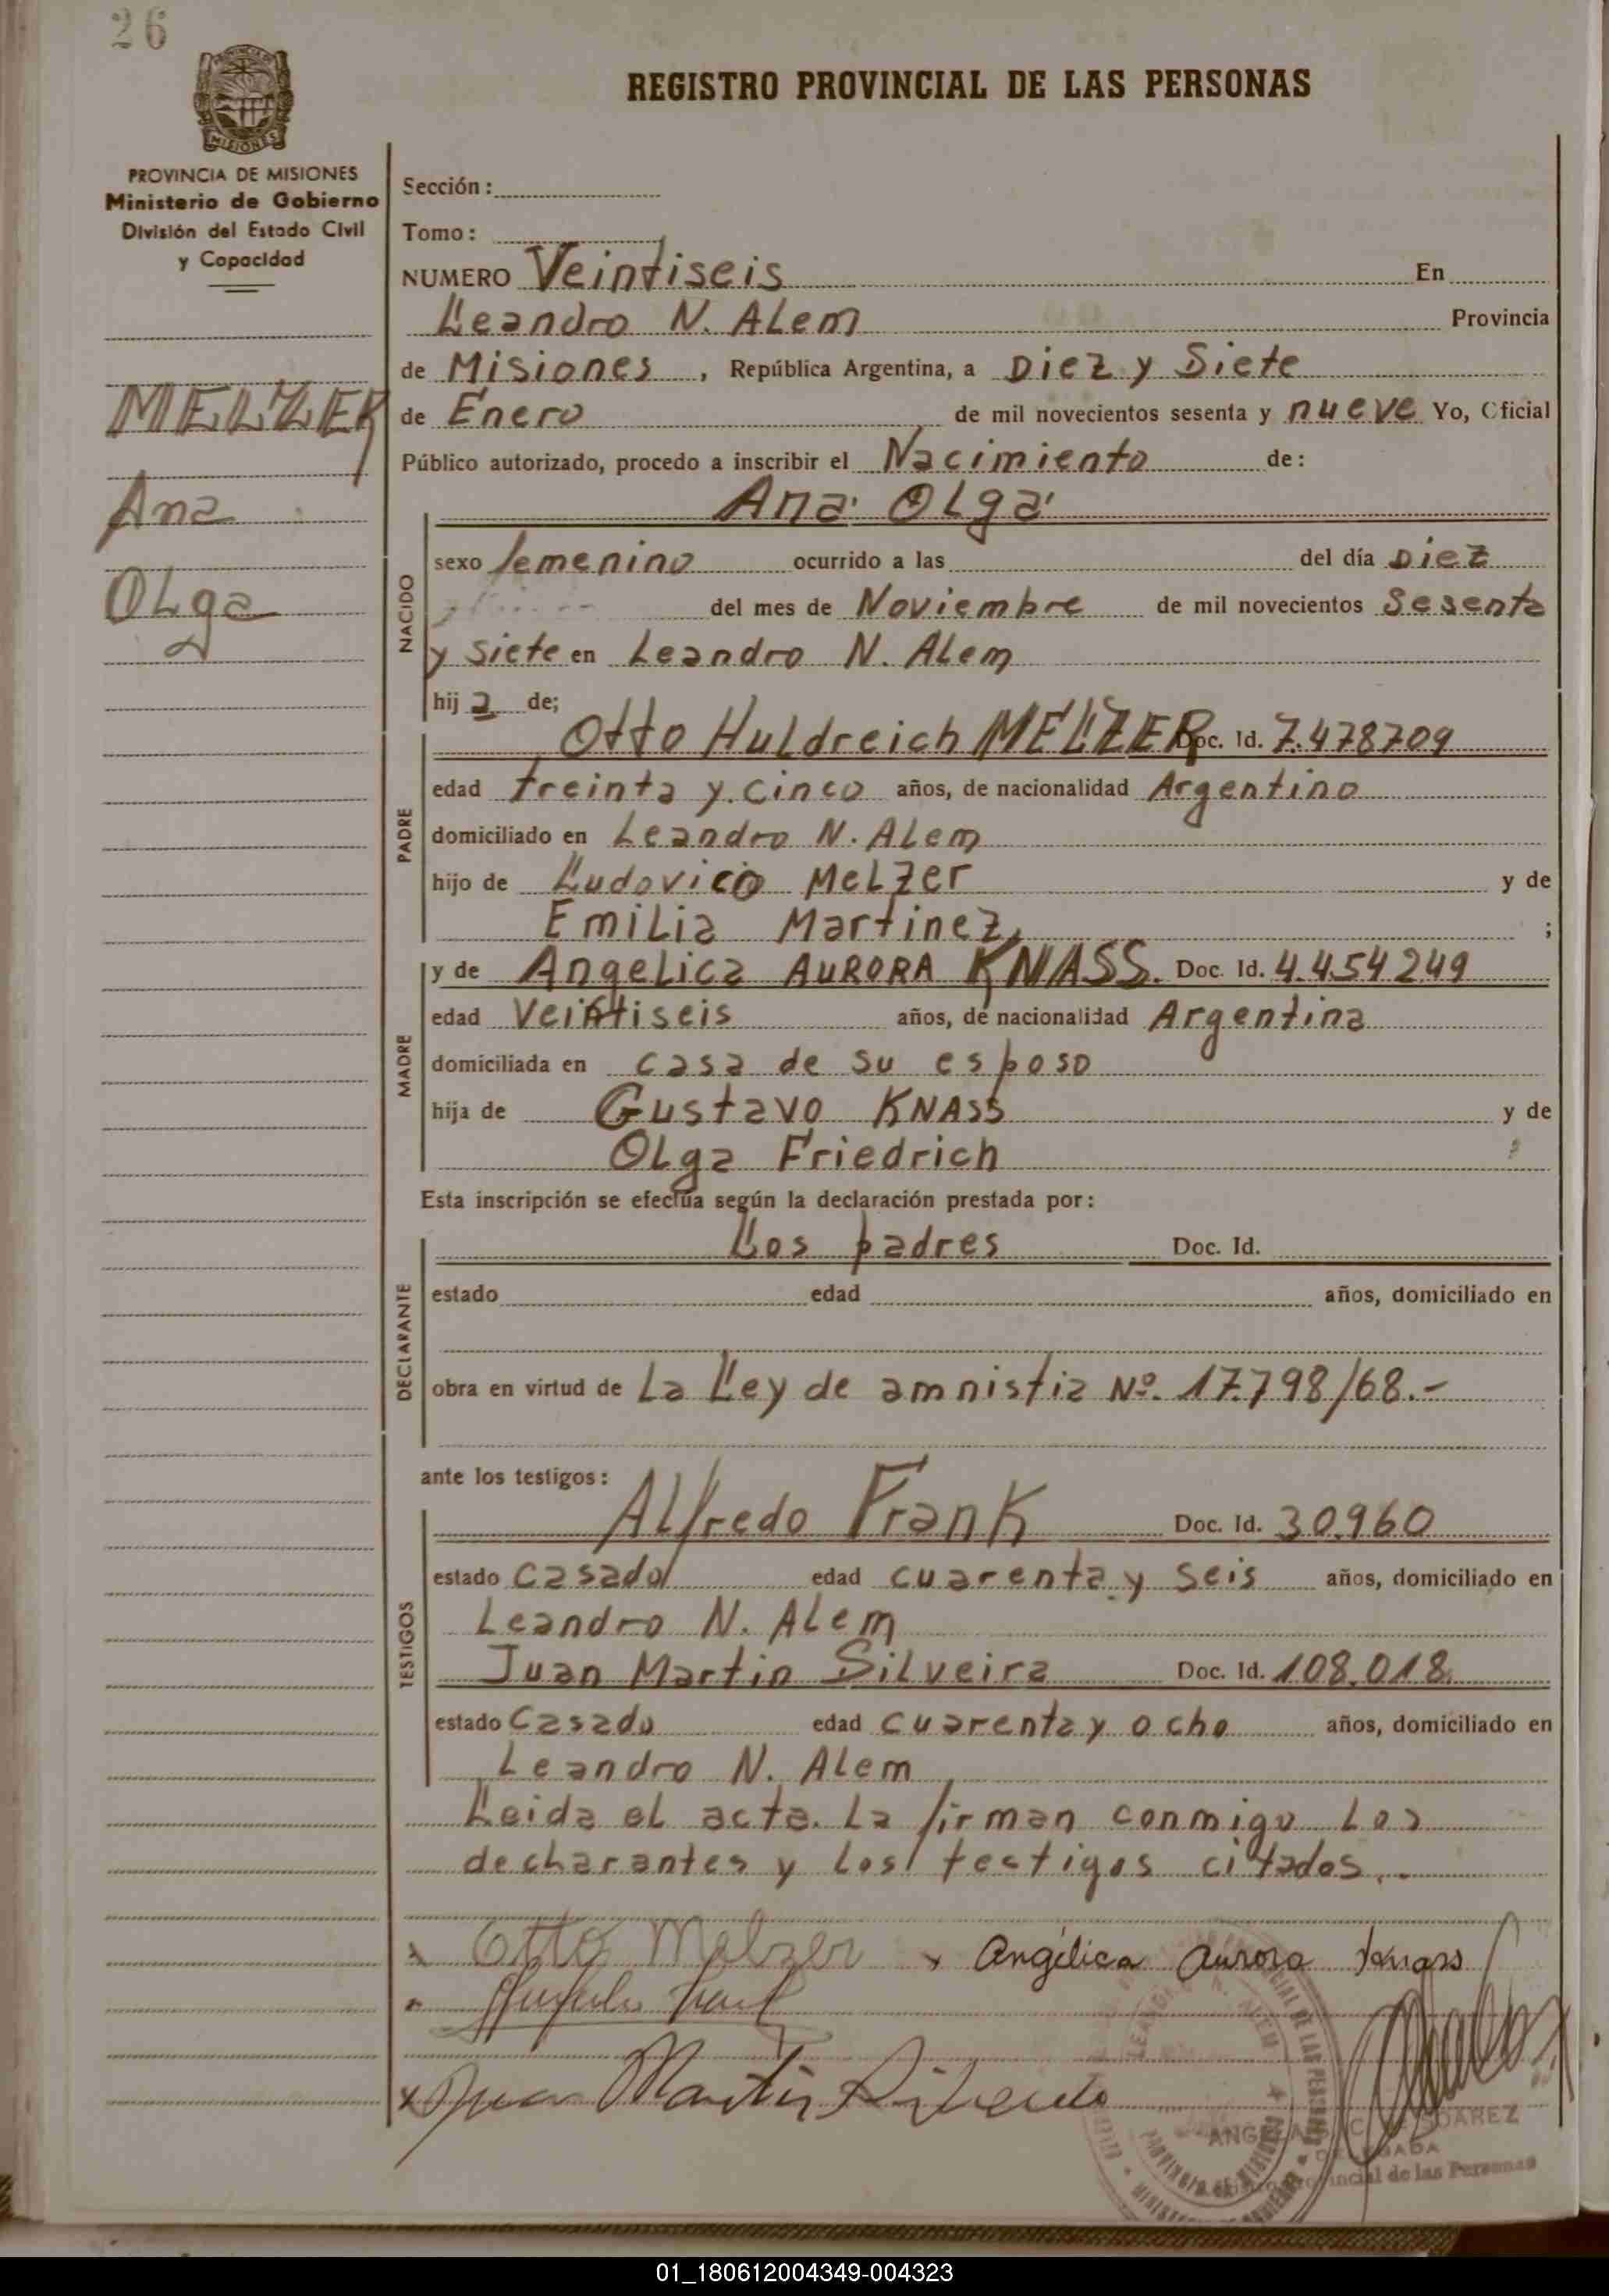 26
REGISTRO PROVINCIAL DE LAS PERSONAS
MISIONES
PROVINCIA DE MISIONES
Ministerio de Gobierno
División del Estado Civil
y Capacidad
MELZER
Ana
Olga
Sección:
Tomo:
NUMERO Veintiseis En
Leandro N. Alem Provincia
de Misiones, República Argentina, a Diez y Siete
de Enero de mil novecientos sesenta y nueve Yo, Oficial
Público autorizado, procedo a inscribir el Nacimiento de:
Ana Olga
NACIDO
sexo femenino ocurrido a las del día Diez
del mes de Noviembre de mil novecientos Sesenta
y siete en Leandro N. Alem
hij a de;
PADRE
Otto Huldreich MELZER Doc. Id. 7.478709
edad treinta y cinco años, de nacionalidad Argentino
domiciliado en Leandro N. Alem
hijo de Ludovico Melzer y de
Emilia Martinez ;
MADRE
y de Angelica AURORA KNASS. Doc. Id. 4.454249
edad Veintiseis años, de nacionalidad Argentina
domiciliada en casa de su esposo
hija de Gustavo KNASS y de
Olga Friedrich ;
Esta inscripción se efectúa según la declaración prestada por:
DECLARANTE
Los padres Doc. Id.
estado edad años, domiciliado en
obra en virtud de La Ley de amnistia Nº. 17.798/68.-
ante los testigos:
TESTIGOS
Alfredo Frank Doc. Id. 30.960
estado casado edad cuarenta y seis años, domiciliado en
Leandro N. Alem
Juan Martin Silveira Doc. Id. 108.018.
estado casado edad cuarenta y ocho años, domiciliado en
Leandro N. Alem
Leida el acta. La firman conmigo los
declarantes y los testigos citados..
x Otto Melzer x Angélica Aurora Knass
x Juan Martin
LEANDRO N. ALEM
PROVINCIA DE MISIONES
SOAREZ
Provincial de las Personas
01_180612004349-004323